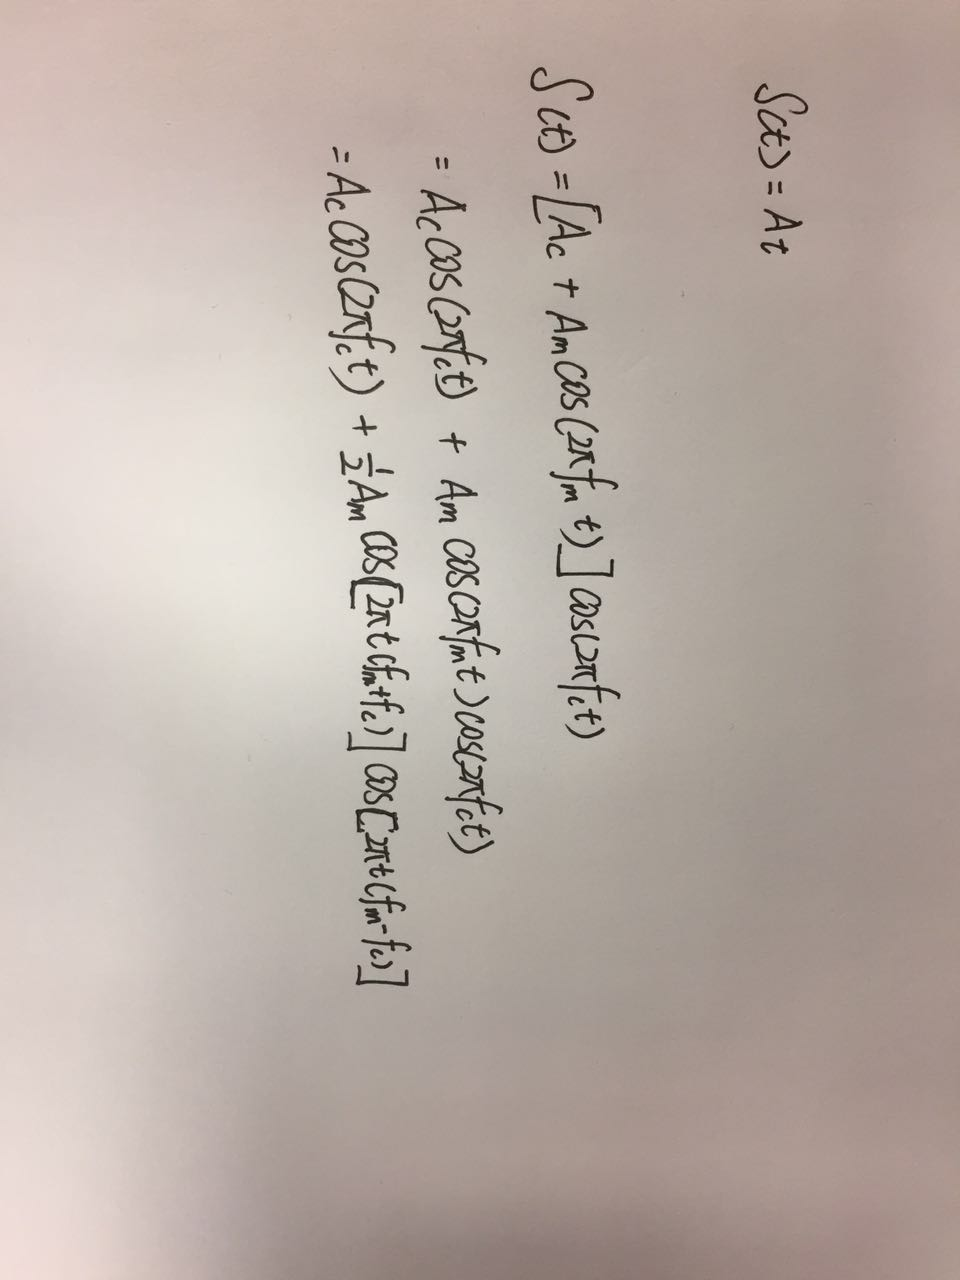 S(t) = At
S(t) = [Ac + Am cos(2πfm t)] cos(2πfct)
= Ac cos(2πfct) + Am cos(2πfmt) cos(2πfct)
= Ac cos(2πfct) + 1/2 Am cos[2πt(fm+fc)] cos[2πt(fm-fc)]